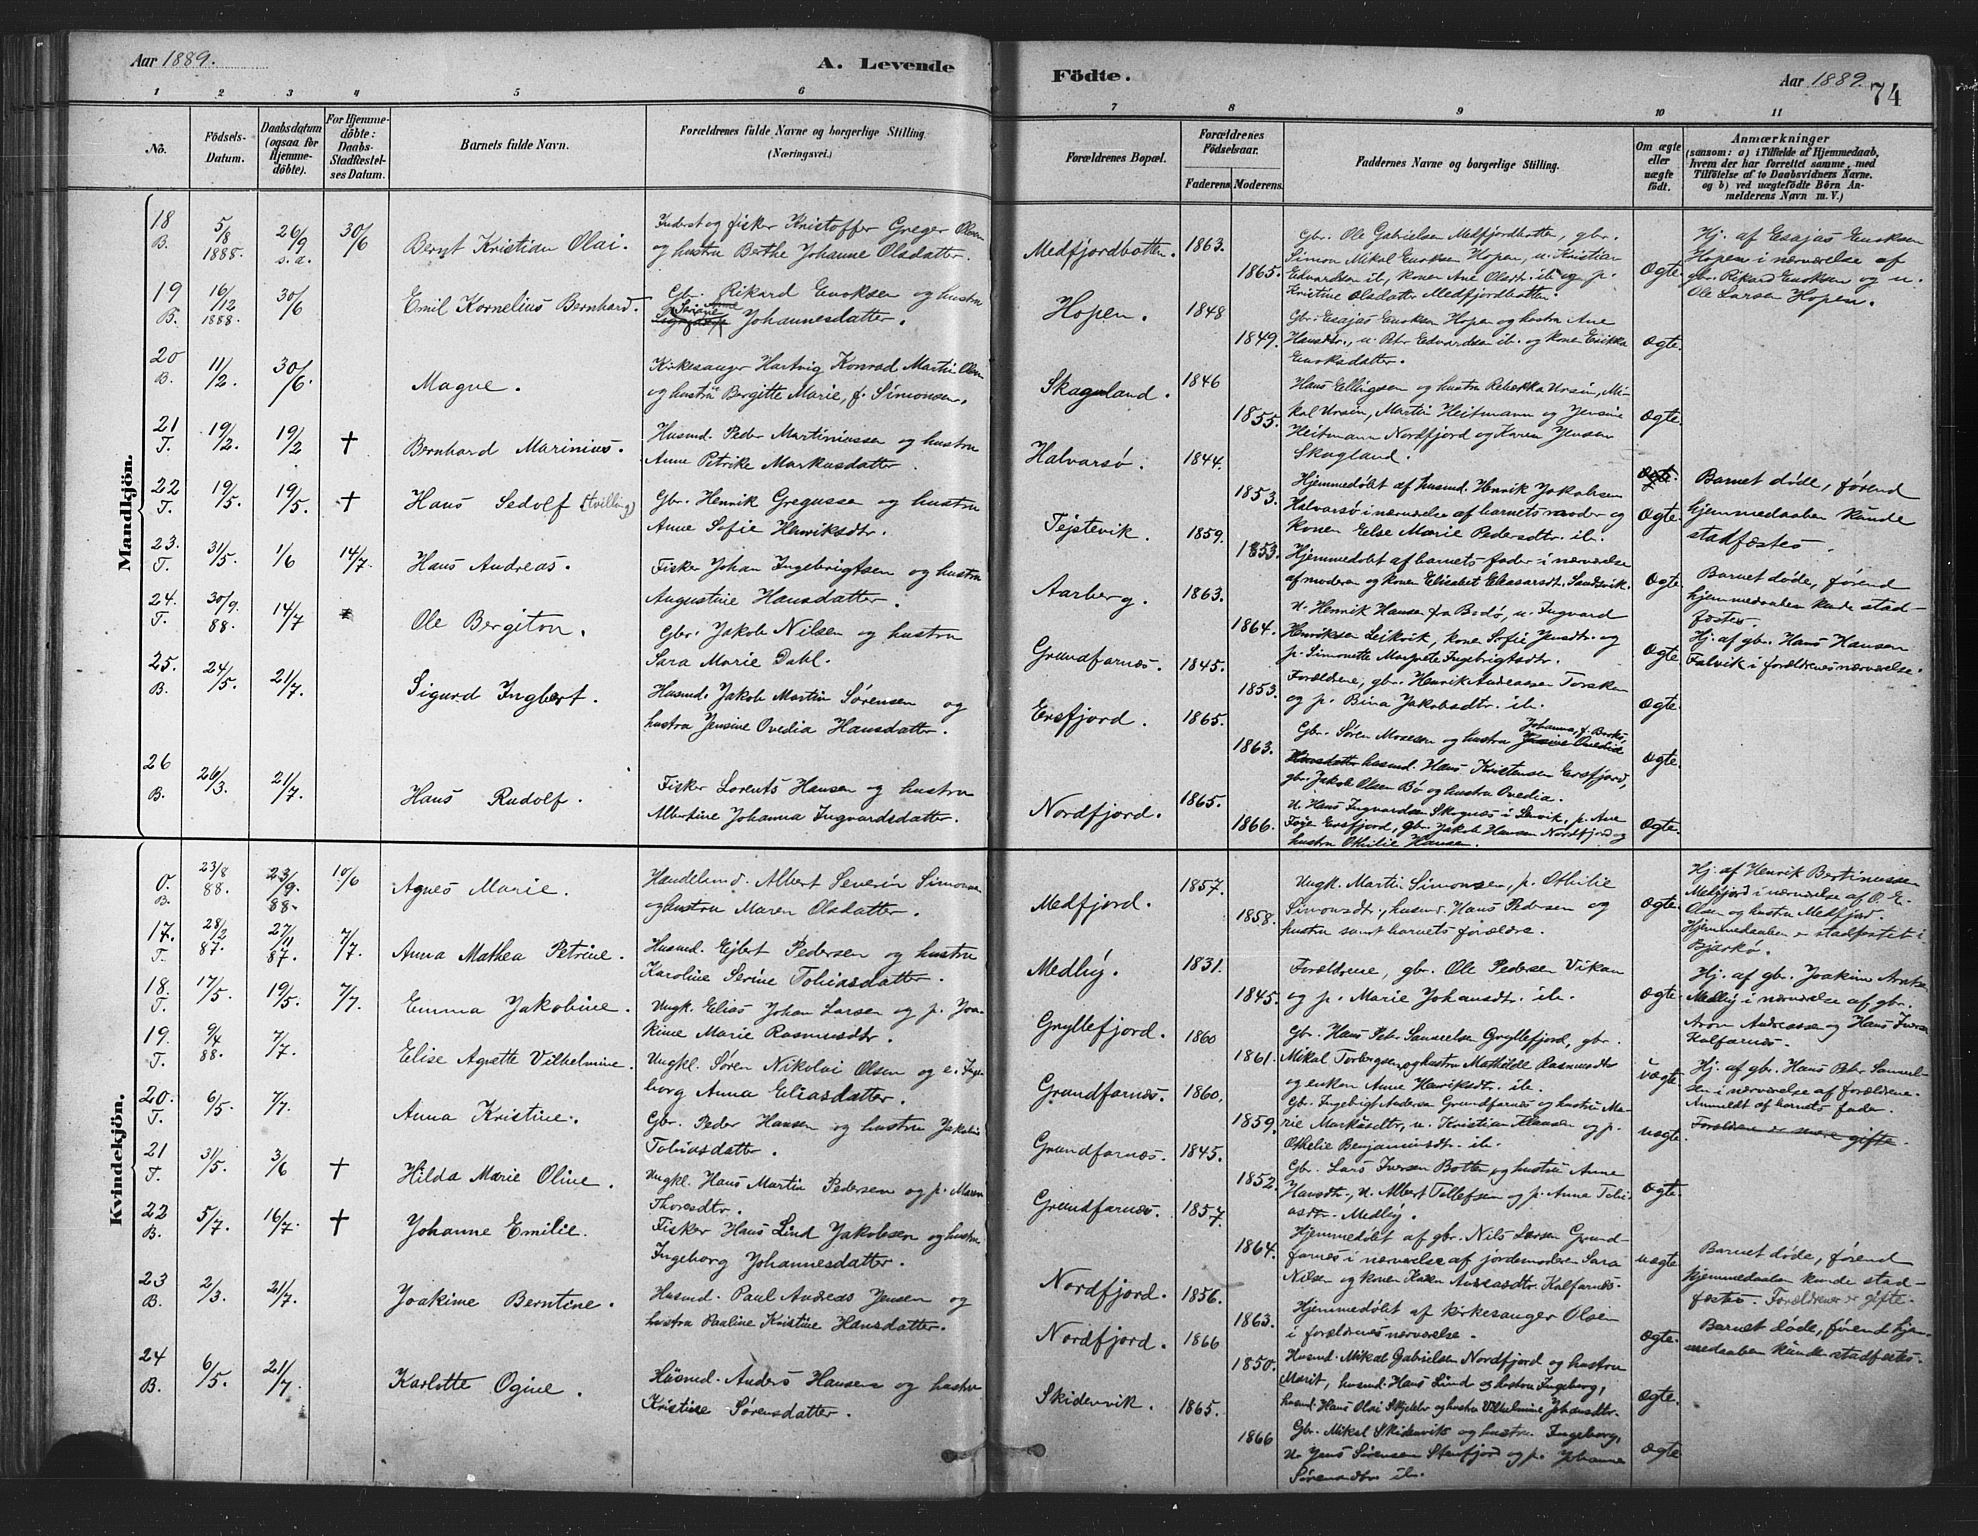 Aar 1889.
A. Levende
Födte.
Aar 1889.
74
1 2 3 4 5 6
7 8 9 10 11
No.
Födsels-Datum.
Daabsdatum (ogsaa for Hjemmedöbte).
For Hjemmedöbte: Daabs-Stadfæstelses Datum.
Barnets fulde Navn.
Forældrenes fulde Navne og borgerlige Stilling.
(Næringsvei.)
Forældrenes Bopæl.
Forældrenes Födselsaar.
Faderens
Moderens
Faddernes Navne og borgerlige Stilling.
Om ægte eller uægte födt.
Anmærkninger
(saasom: a) i Tilfælde af Hjemmedaab,
hvem der har forrettet samme, med
Tilföielse af to Daabsvidners Navne.
og b) ved uægtefödte Börn Anmelderens Navn m. V.)
Mandkjön.
18 B. 5/8 1888. 26/9 s.a. 30/6 Bernt Kristian Olai.
Inderst og fisker Kristoffer Greger Olsen
og hustru Berthe Johanne Olsdatter.
Medfjordbotten. 1863. 1865.
Gbr. Ole Gabrielsen Mefjordbotten, gbr.
Simon Mikal Enoksen Hopen, u. Kristian
Edvardsen ib, konen Ane Olsdt. ib og p.
Kristine Olsdatter Medfjordbotten.
Ægte
Hj. af Esajas Enoksen
Hopen i nærværelse af
gbr. Rikard Enoksen og u.
Ole Larsen Hopen.
19 B. 16/12 1888. 30/6 Emil Kornelius Bernhard.
Gbr. Rikard Enoksen og hustru
Seriane Anne Johannesdatter.
Hopen. 1848 1849.
Gbr. Esajas Enoksen Hopen og hustru Ane
Hansdtr., u. Petr Edvardsen ib. og kone Erikka
Enoksdatter.
Ægte.
20 B. 11/2. 30/6. Magne.
Kirkesanger Hartvig Konrad Martin Olsen
og hustru Bergitte Marie, f. Simonsen.
Skagaland. 1846 1855.
Hans Ellingsen og hustru Rebekka Ursin, Mikal Ursin, Martin Heitmann og Jensine
Heitmann Nordfjord og Karen Jensen
Skagland.
Ægte.
21 T. 19/2. 19/2 + Bernhard Marinius.
Husmd. Peder Martinussen og hustru
Anne Petrike Markusdatter.
Halvarsø. 1844. 1853.
Hjemmedøbt af husmd. Henrik Jakobsen
Halvarsø i nærværelse af barnets moder og
konen Else Marie Pedersdtr. ib.
Ægte.
Barnet døde, førend
hjemmedaaben kunde
stadfæstes.
22 T. 19/5. 19/5. + Hans Sedolf (tvilling)
Gbr. Henrik Gregussen og hustru
Anne Sofie Henriksdtr.
Tejstevik. 1859. 1853.
Hjemmedøbt af barnets fader i nærværelse
af moderen og konen Elisabet Eleasarsdt. Sandsvik.
Ægte.
Barnet døde, førend
hjemmedaaben kunde stadfæstes.
23. T. 31/5. 1/6 14/7. Hans Andreas.
Fisker Johan Ingebrigtsen og hustru
Augustine Hansdatter.
Aarberg. 1863. 1864.
U. Henrik Hansen fra Bodø, u. Ingvard
Henriksen Leikvik, kone Sofie Jensdtr. og
p. Simonette Margrete Ingebrigtsdtr.
Ægte.
Hj. af gbr. Hans Hansen
Falvik i forældrenes nærværelse.
24. T. 30/9. 88. 14/7 Ole Bergiton.
Gbr. Jakob Nilsen og hustru
Sara Marie Dahl.
Grundfarnes. 1845. 1853.
Forældrene, gbr. Henrik Andreassen Torsken
og p. Bina Jakobsdtr. ib.
Ægte.
25. B. 24/5. 21/7. Sigurd Ingbert.
Husmd. Jakob Martin Sørensen og
hustru Jensine Ovedia Hansdatter.
Ersfjord. 1865. 1863.
Gbr. Søren Mosesen og hustru Johanna, f. Brox,
husmd. Hans Kristensen Ersfjord,
gbr. Jakob Olsen Bø og hustru Ovedia.
Ægte.
26 B. 26/3. 21/7. Hans Rudolf.
Fisker Lorents Hansen og hustru
Albertine Johanna Ingvardsdatter.
Nordfjord. 1865. 1866.
U. Hans Ingvardsen Skognæs i Lenvik, p. Ane
Føje Ersfjord, gbr. Jakob Hansen Nordfjord og
hustru Othilie Hansen.
Ægte.
Kvindekjön.
0. B. 23/8 88. 23/9. 88. 10/6 Agnes Marie.
Handelsmd. Albert Severin Simonsen
og hustru Maren Olsdatter.
Medfjord. 1857. 1858.
Ungk. Martin Simonsen, p. Othilie
Simonsdt., husmd. Hans Pedersen og
hustru samt barnets forældre.
Ægte.
Hj. af Henrik Bertinussen
Mefjord i nærværelse af O. E.
Olsen og hustru Medfjord.
Hjemmedaaben er stadfæstet i
Bjarkø.
17. T. 28/2 87. 27/11 87. 7/7. Anna Mathea Petrine.
Husmd. Ejlert Pedersen og hustru
Karoline Serine Tobiasdatter.
Medby. 1831. 1845.
Forældrene, gbr. Ole Pedersen Vikan
og p. Marie Johansdtr. ib.
Ægte
Hj. af gbr. Joakim
Medby i nærværelse af gbr.
Aron Andreassen og Hans Iversen
Kalfarnes.
18. T. 17/5. 19/5. 7/7. Emma Jakobine.
Ungk. Elias Johan Larsen og p. Joakime Marie Rasmusdtr.
Gryllefjord. 1860 1861.
Gbr. Hans Petr Samuelsen Gryllefjord, gbr.
Mikal Torbergsen og hustru Mathilde Rasmusdtr
og enken Anne Henriksdtr. ib.
Uægte
Hj. af gbr. Hans Petr Samuelsen i nærværelse af forældrene.
Anmeldt af barnets fader.
19. T. 9/4 88. 7/7. Elise Agnette Vilhelmine.
Ungkl. Søren Nikolai Olsen og e. Ingeborg Anna Eliasdatter.
Grundfarnes. 1860. 1859.
Gbr. Ingebrigt Andersen Grundfarnes og hustru Marie Markusdtr., u. Kristian Klausen og p.
Othelie Benjaminsdtr. ib.
uægte.
Forældrene er nære gifte.
20. T. 6/5. 7/7. Anna Kristine.
Gbr. Peder Hansen og hustru Jakobine
Tobiasdatter.
Grundfarnes. 1845. 1852.
Gbr. Lars Iversen Botten og hustru Anne
Hansdt., u. Albert Tollefsen og p. Anne Tobiasdtr. Medby.
Ægte
21 T. 31/5. 3/6 + Hilda Marie Oline.
Ungkl. Hans Martin Pedersen og p. Maren
Thoresdtr.
Grundfarnes. 1857. 1864.
Hjemmedøbt af gbr. Nils Larsen Grundfarnes i nærværelse af jordemoderen Sara
Nilsen og konen Karen Andreasdtr. Kalfarnes.
uægte
Barnet døde, førend
hjemmedaaben kunde stadfæstes. Forældrene er gifte.
22 B. 5/7. 16/7. + Johanne Emilie.
Fisker Hans Lind Jakobsen og hustru
Ingeborg Johannesdatter.
Nordfjord. 1856. 1863.
Hjemmedøbt af kirkesanger Olsen
i forældrenes nærværelse.
Ægte.
Barnet døde, førend hjemmedaaben kunde stadfæstes.
23 B. 2/3. 21/7. Joakime Berntine.
Husmd. Paul Andreas Jensen og
hustru Pauline Kristine Hansdatter.
Nordfjord. 1866 1850.
Husmd. Mikal Gabrielsen Nordfjord og hustru
Marit, husmd. Hans Lind og hustru Ingeborg,
husmd. Hans Olai Skjelbr og hustru Vilhelmine Johansdtr.
Ægte.
24 B. 6/5. 21/7. Karlotte Ogine.
Husmd. Anders Hansen og hustru
Kristine Sørensdatter.
Skidenvik. 1865. 1866
Gbr. Mikal Skidenvik og hustru Ingeborg,
U. Jens Sørensen Stenfjord og p. Johanna
Sørensdtr. ib.
Ægte